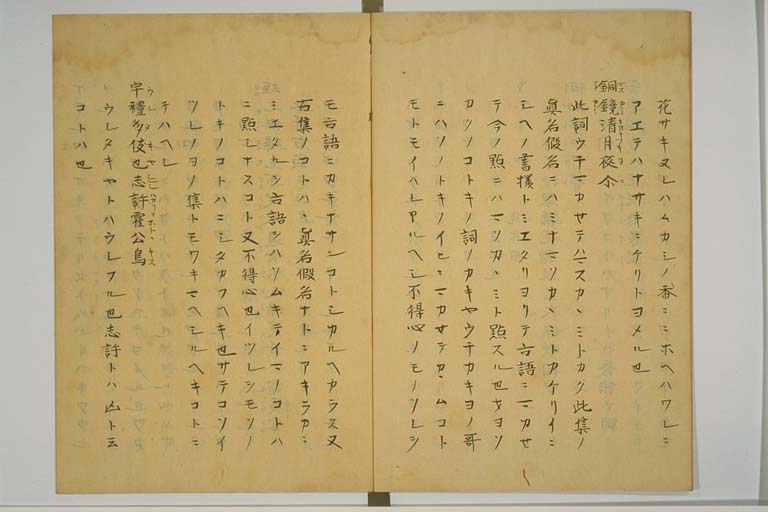 花サキヌレハムカシノ香ニニホヘハワレニ
アエテハナサキニケリトヨメル也
銅鏡清月夜尓
此詞ウチマカセテハマスカヽミトカク此集ノ
眞名假名ニハミナマソカヽミトカケリイニ
シヘノ書様トミエタリヨリテ言語ニマカせ
テ今ノ點ニハマソカヽミト點スル也オヨソ
カヤウノコトキノ詞ノカキヤウチカキヨノ哥
ニハソノトキノイヒニマカセテカヽムコト
モトモイハレアルヘシ不得心ノモノソレシ
モ言語ニカキナサンコトシカルヘカラス又
右集ノコトハヽ眞名假名ナトニアキラカニ
ミエタルシ言語シハソムキテイマノコトハ
ニ點シナスコト又不得心也イツレシモソノ
トキノコトハニシタカフヘキ也サテコソイ
ツレノヨノ集トモワキマヘシルヘキコトニ
テハヘレ
宇禮多伎也志許霍公鳥
ウレタキヤトハウレフル也志許トハ凶ト云
コトハ也